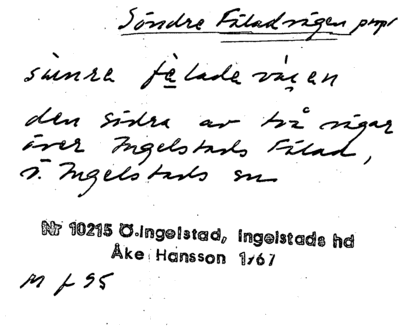 Söndre Fäladvägen pmpl
sünre fe lade vägen
den södra av två vägar
över Ingelstads Fälad,
Ö. Ingelstads sn
Nr 10215 Ö.Ingelstad, Ingelstads hd
Åke Hansson 1/67
M f 95